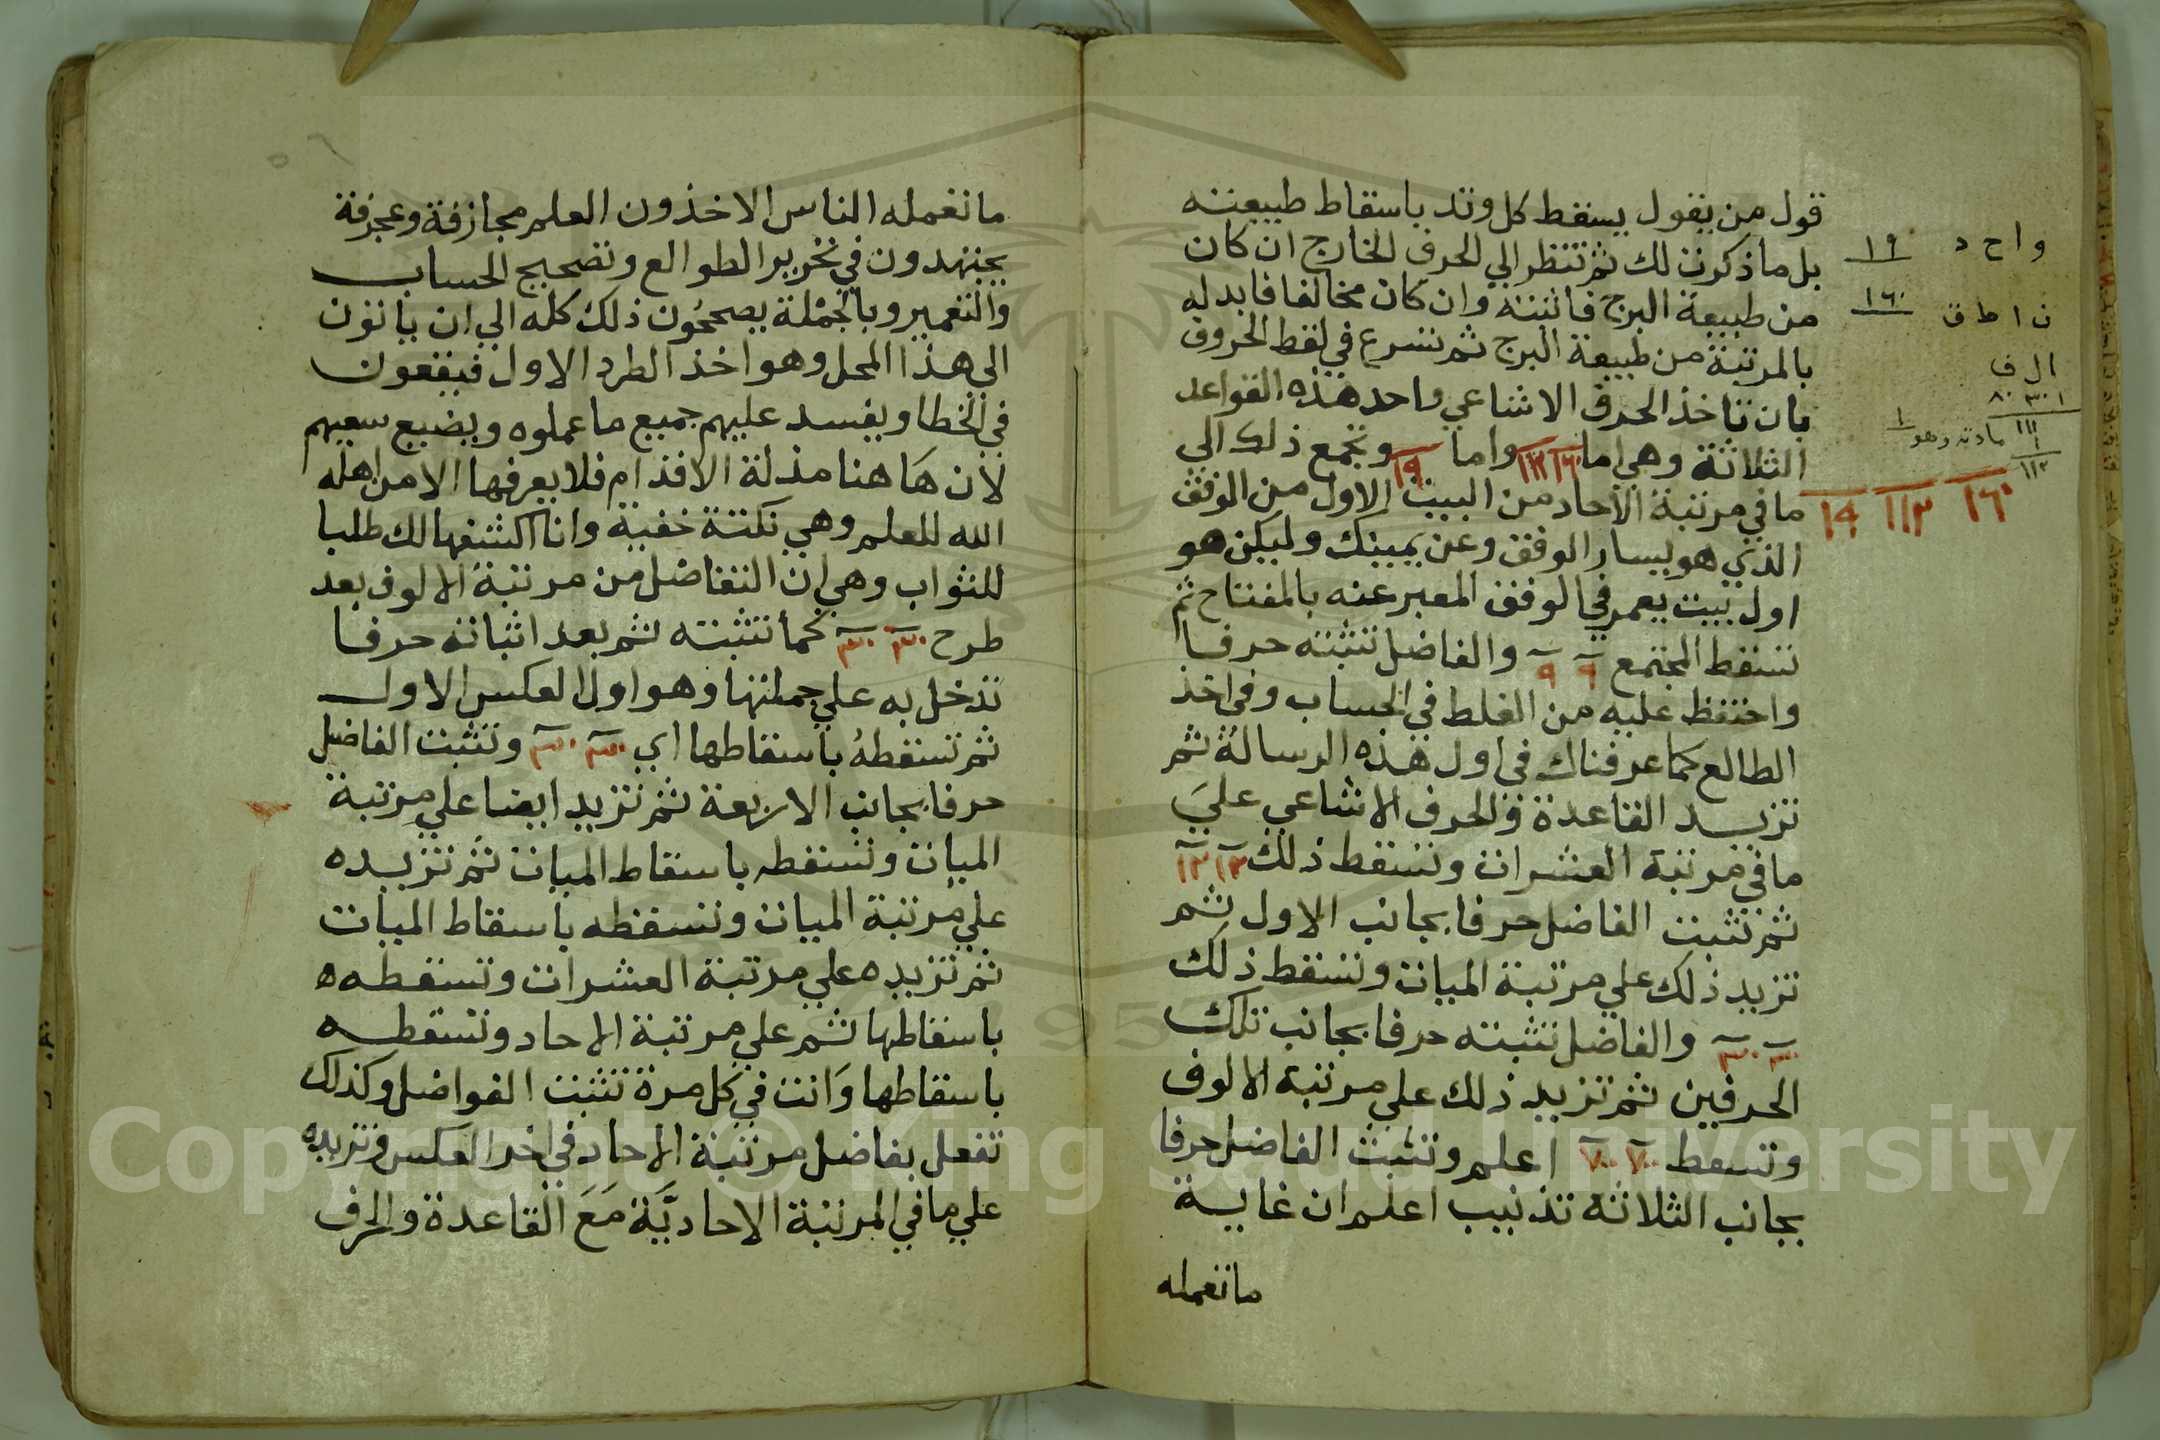 قول من يقول يسقط كل وتد باسقاط طبيعته
بل ما ذكرت لك ثم تنظر الي الحرف الخارج ان كان
من طبيعة البرج فاثبته وان كان مخالفا فابدله
بالمرتبة من طبيعة البرج ثم تشرع في لقط الحروف
بان تاخذ الحرف الاشاعي واحد هذه القواعد
الثلاثة وهي اما ١٦٠ ١١٢ واما ١٩ وتجمع ذلك الى
ما في مرتبة الآحاد من البيت الاول من الوفق
الذي هو يسار الوفق وعن يمينك وليكن هو
اول بيت يعمر في الوفق المعبر عنه بالمفتاح ثم
تسقط المجتمع ٩ ٩ والفاضل تثبته حرفا
واحتفظ عليه من الغلط في الحساب وفي اخذ
الطالع كما عرفناك في اول هذه الرسالة ثم
تزيد القاعدة والحرف الاشاعي علي
ما في مرتبة العشرات وتسقط ذلك ١٢ ١٢
ثم تثبت الفاضل حرفا بجانب الاول ثم
تزيد ذلك علي مرتبة الميات وتسقط ذلك
٣٠ ٣٠ والفاضل تثبته حرفا بجانب تلك
الحرفين ثم تزيد ذلك علي مرتبة الالوف
وتسقط اعلم وتثبت الفاضل حرفا
بجانب الثلاثة تذنيب اعلم ان غاية
ما تعمله
واحد ١٩
ن ا ط ق ١٦٠
ال ف
١ ٣٠ ٨٠
١١١
١ مادته وهو ١
١١٢
١٦٠ ١١٢ ١٩
ما تعمله الناس الاخذون العلم مجازفة وعجرفة
يجتهدون في تحرير الطوالع وتصحيح الحساب
والتعمير وبالجملة يصححون ذلك كله الي ان ياتون
الي هذا المحل وهو اخذ الطرد الاول فيقعون
في الخطا ويفسد عليهم جميع ما عملوه ويضيع سعيهم
لان هاهنا مذلة الاقدام فلا يعرفها الا من اهله
الله للعلم وهي نكتة خفية وانا اكشفها لك طلبا
للثواب وهي ان التفاضل من مرتبة الالوف بعد
طرح ٣٠ ٣٠ كما تثبته ثم بعد اثباته حرفا
تدخل به علي جملتها وهو اول العكس الاول
ثم تسقطه باسقاطها اي ٣٠ ٣٠ وتثبت الفاضل
حرفا بجانب الاربعة ثم تزيد ايضا علي مرتبة
الميات وتسقطه باسقاط الميات ثم تزيده
علي مرتبة الميات وتسقطه باسقاط الميات
ثم تزيده علي مرتبة العشرات وتسقطه
باسقاطها ثم علي مرتبة الاحاد وتسقطه
باسقاطها وانت في كل مرة تثبت الفواضل وكذلك
تفعل بفاضل مرتبة الاحاد في اخر العكس وتزيده
علي ما في المرتبة الاحادية مع القاعدة والحرف
Copyright © King Saud University